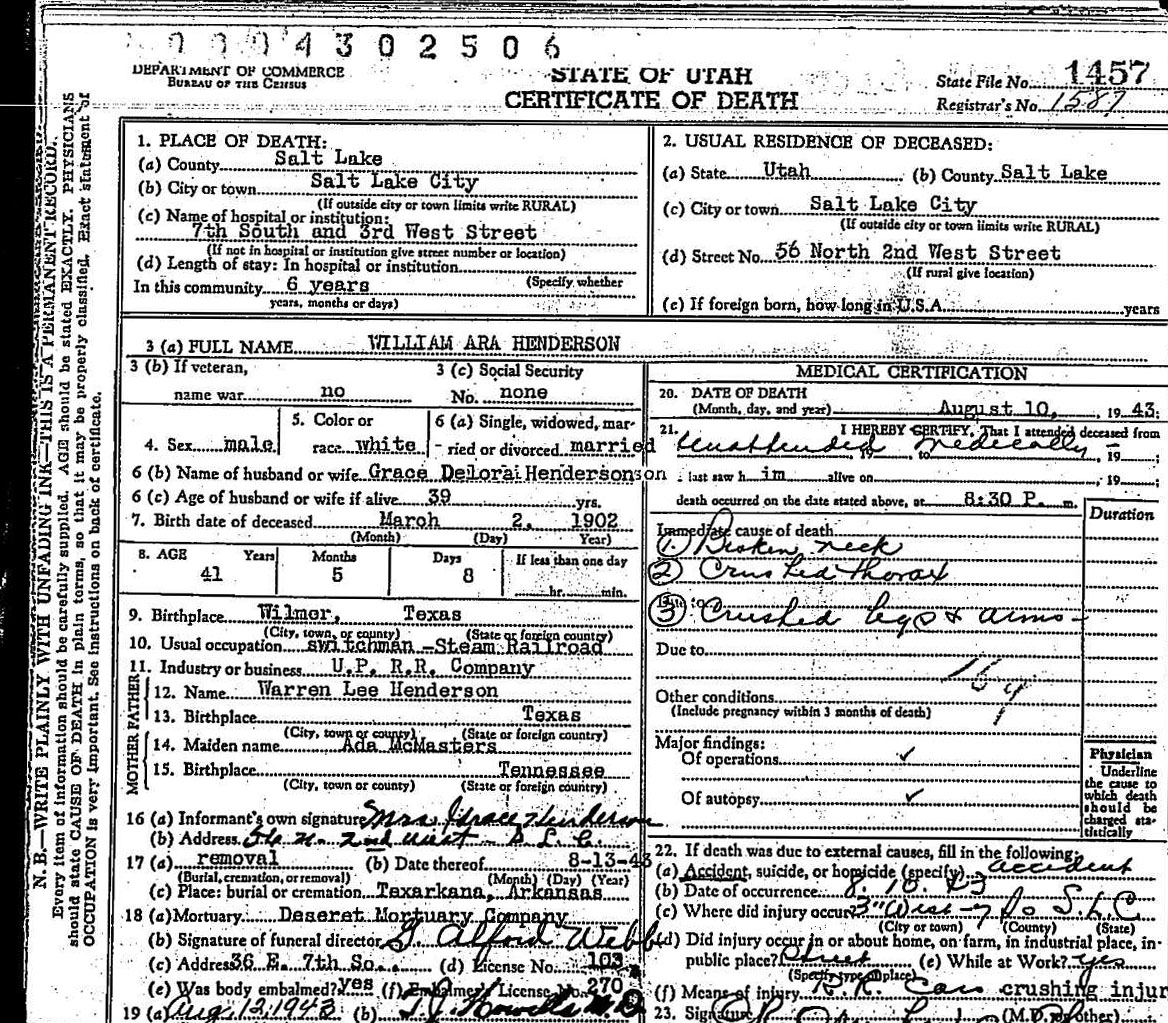 0004302506
DEPARTMENT OF COMMERCE
BUREAU OF THE CENSUS
STATE OF UTAH
CERTIFICATE OF DEATH
State File No. 1457
Registrar's No. 1587
N. B.—WRITE PLAINLY WITH UNFADING INK—THIS IS A PERMANENT RECORD.
Every item of information should be carefully supplied. AGE should be stated EXACTLY. PHYSICIANS
should state CAUSE OF DEATH in plain terms, so that it may be properly classified. Exact statement of
OCCUPATION is very important. See instructions on back of certificate.
1. PLACE OF DEATH:
(a) County Salt Lake
(b) City or town Salt Lake City
(If outside city or town limits write RURAL)
(c) Name of hospital or institution:
7th South and 3rd West Street
(If not in hospital or institution give street number or location)
(d) Length of stay: In hospital or institution
(Specify whether
In this community 6 years
years, months or days)
2. USUAL RESIDENCE OF DECEASED:
(a) State Utah (b) County Salt Lake
(c) City or town Salt Lake City
(If outside city or town limits write RURAL)
(d) Street No. 56 North 2nd West Street
(If rural give location)
(e) If foreign born, how long in U.S.A. years
3 (a) FULL NAME WILLIAM ARA HENDERSON
3 (b) If veteran, 3 (c) Social Security
name war no No. none
4. Sex male 5. Color or race white 6 (a) Single, widowed, married or divorced married
6 (b) Name of husband or wife Grace Delorai Hendersonson
6 (c) Age of husband or wife if alive 39 yrs.
7. Birth date of deceased March 2, 1902
(Month) (Day) Year)
8. AGE Years Months Days If less than one day
41 5 8 hr. min.
9. Birthplace Wilmer, Texas
(City, town, or county) (State or foreign country)
10. Usual occupation switchman -Steam Railroad
11. Industry or business U.P. R.R. Company
FATHER
12. Name Warren Lee Henderson
13. Birthplace Texas
(City, town or county) (State or foreign country)
MOTHER
14. Maiden name Ada McMasters
15. Birthplace Tennessee
(City, town or county) (State or foreign country)
16 (a) Informant's own signature Mrs Grace Henderson
(b) Address 56 N. 2nd West S. L. C.
17 (a) removal (b) Date thereof 8-13-43
(Burial, cremation, or removal) (Month) (Day) (Year)
(c) Place: burial or cremation Texarkana, Arkansas
18 (a) Mortuary Deseret Mortuary Company
(b) Signature of funeral director G. Alford Webb
(c) Address 36 E. 7th So. (d) License No. 103
(e) Was body embalmed? yes (f) Embalmer's License No. 270
19 (a) Aug. 12, 1943 (b) M.D.
MEDICAL CERTIFICATION
20. DATE OF DEATH
(Month, day, and year) August 10, 1943:
21. I HEREBY CERTIFY, That I attended deceased from
Unattended 19 to medically 19 ;
I last saw him alive on , 19 ;
death occurred on the date stated above, at 8:30 P. m.
Duration
Immediate cause of death
(1) Broken neck
(2) Crushed thorax
Due to
(3) Crushed legs & arms
Due to
Other conditions
(Include pregnancy within 3 months of death)
Major findings:
Of operations ✓
Of autopsy ✓
Physician
Underline
the cause to
which death
should be
charged sta-
tistically
22. If death was due to external causes, fill in the following:
(a) Accident, suicide, or homicide (specify) accident
(b) Date of occurrence 8. 10. 43
(c) Where did injury occur? 3" West - 7 So S.L.C
(City or town) (County) (State)
(d) Did injury occur in or about home, on farm, in industrial place, in
public place? Street (e) While at Work? yes
(Specify type of place)
(f) Means of injury R.R. Cars crushing injur
23. Signature (M.D. or other)